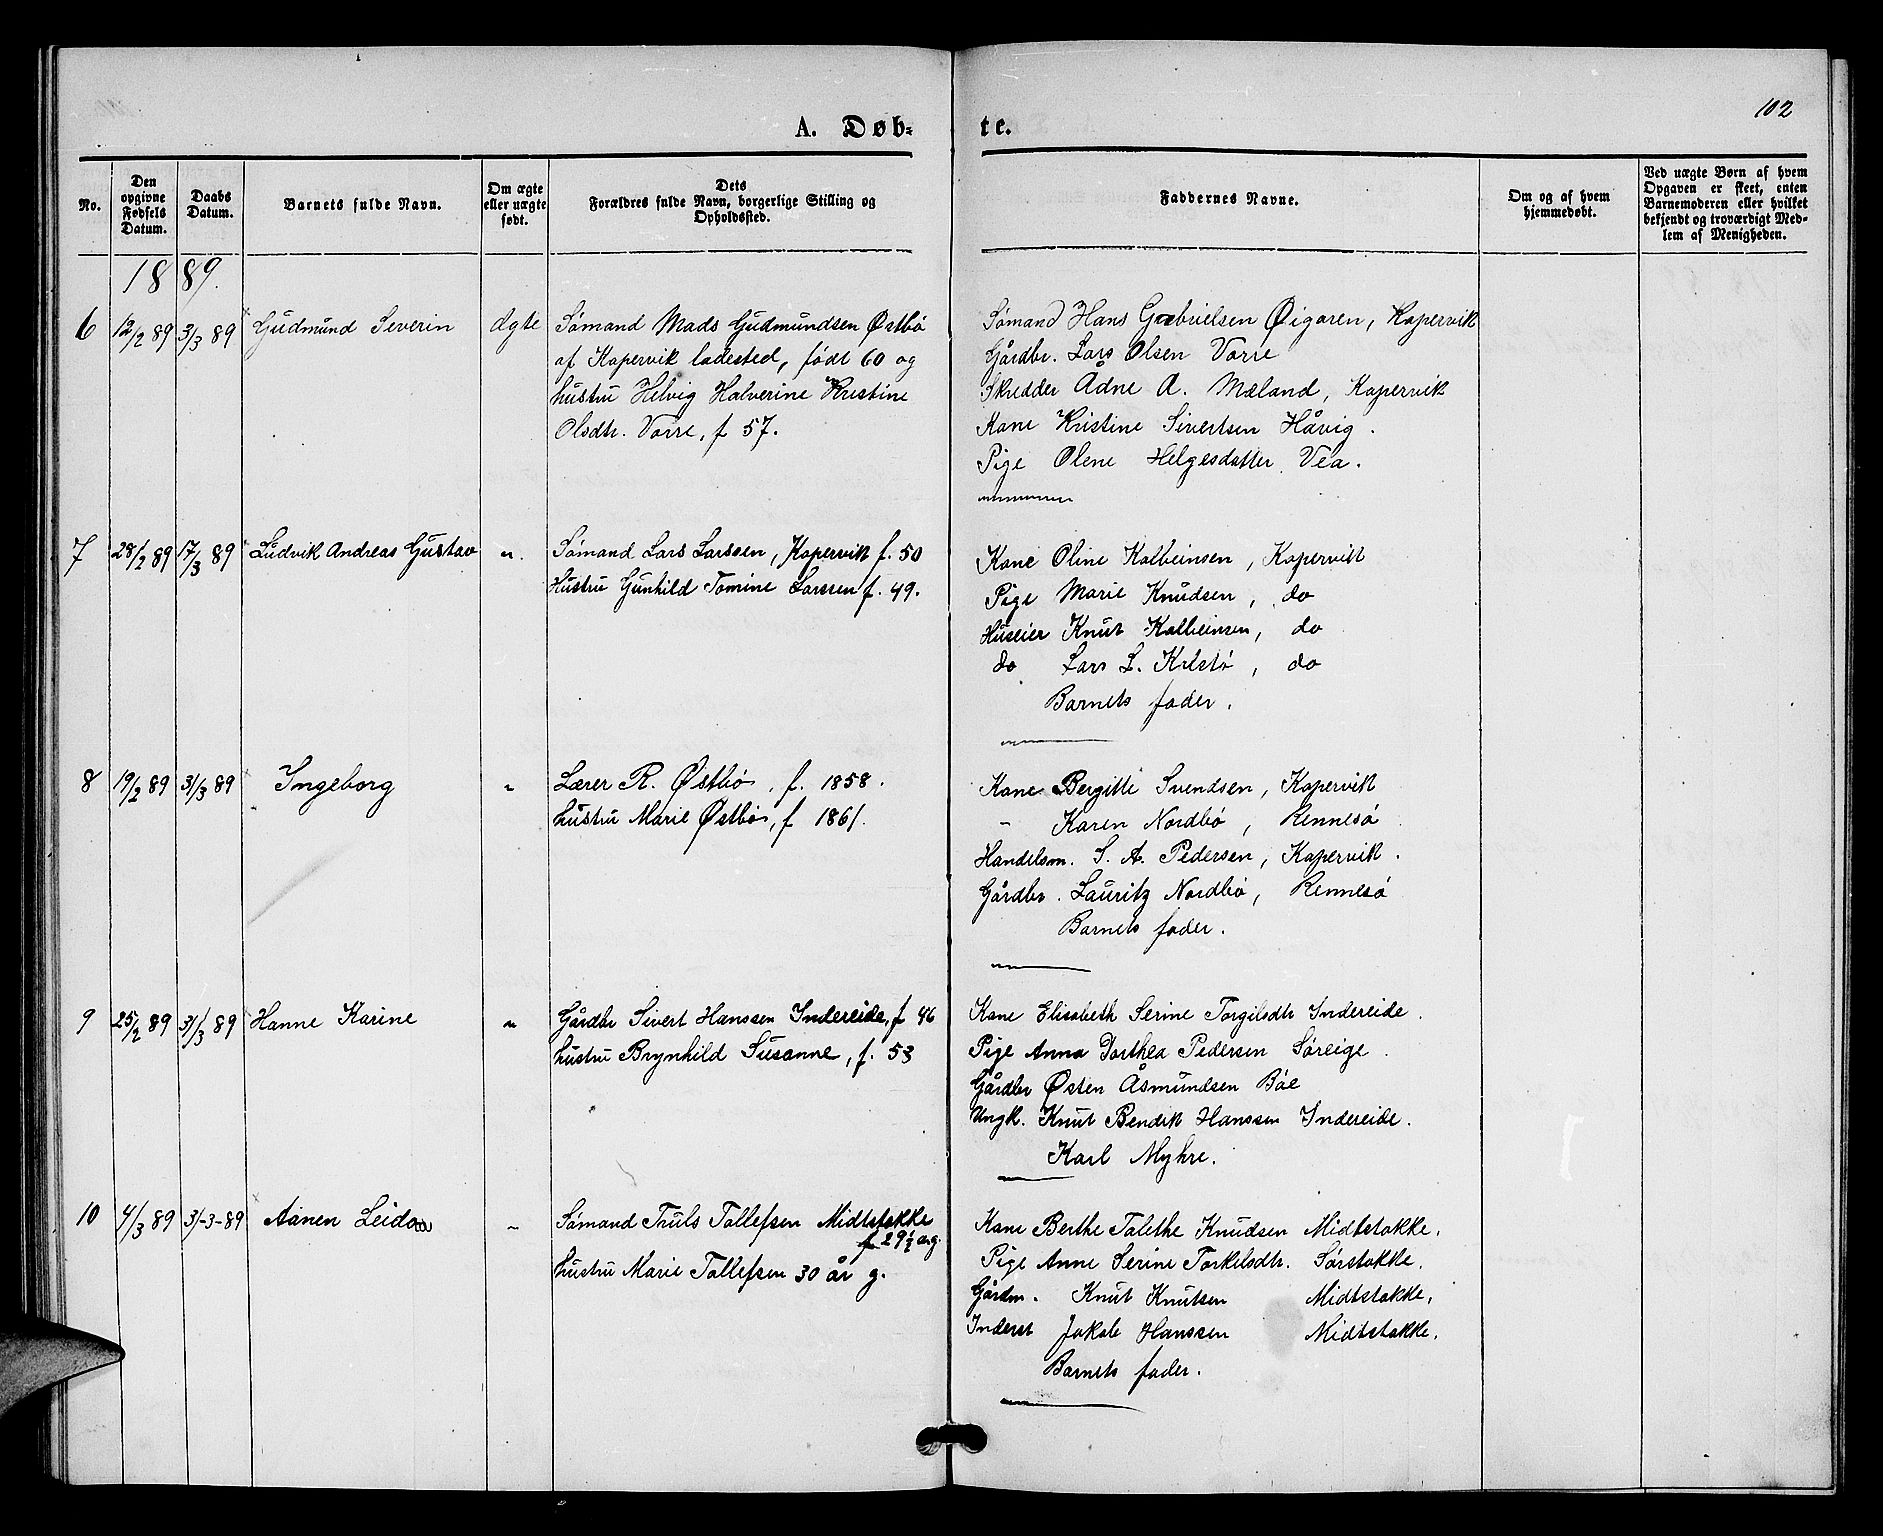 102
A. Døb-te.
No.
Den opgivne Fødsels Datum.
Daabs Datum.
Barnets fulde Navn.
Om ægte eller uægte født.
Dets Forældres fulde Navn, borgerlige Stilling og Opholdssted.
Faddernes Navne.
Om og af hvem hjemmedøbt.
Ved uægte Børn af hvem Opgaven er skeet, enten Barnemoderen eller hvilket bekjendt og troværdigt Medlem af Menigheden.
1889.
6 12/2 89 3/3 89 Gudmund Severin ægte
Sömand Mads Gudmundsen Østbö
af Kopervik ladested, födt 60 og
hustru Helvig Halverine Kristine
Olsdtr. Vorre, f 57.
Sömand Hans Gabrielsen Øigaren, Kopervik
Gårdbr. Lars Olsen Vorre
Skredder Ådne A. Mæland, Kopervik
Kone Kristine Sivertsen Håvig.
Pige Olene Helgesdatter Vea.
7 28/2 89 17/3 89 Ludvik Andreas Gustav "
Sömand Lars Larssen, Kopervik f. 50
Hustru Gunhild Tomine Larssen f. 49.
Kone Oline Kolbeinsen, Kopervik
Pige Marie Knudsen, do
Huseier Knut Kolbeinsen, do
do Lars L. , do
Barnets fader.
8 19/2 89 31/3 89 Ingeborg "
Lærer R. Østbö, f. 1858.
hustru Marie Østbö, f 1861.
Kone Bergitte Svendsen, Kopervik
" Karen Nordbö, Rennesö
Handelsm. S. A. Pedersen, Kopervik.
Gårdbr. Lauritz Nordbö, Rennesö
Barnets fader.
9 25/2 89 31/3 89 Hanne Karine "
Gårdbr Sivert Hanssen Indereide, f 46
hustru Brynhild Susanne, f. 53
Kone Elisabeth Serine Torgilsdtr Indereide.
Pige Anna Dorthea Pedersen Söreige.
Gårdbr Østen Åsmundsen Böe
Ungk. Knut Bendik Hanssen Indereide.
Karl Myhre.
10 4/3 89 31-3-89 Aanen "
Sömand Truls Tollefsen Midtstokke
f 29½ a.g.
hustru Marie Tollefsen 30 år g.
Kone Berthe Talethe Knudsen Midtstokke.
Pige Anne Serine Torkelsdtr. Sörstokke.
Gårdm. Knut Knutsen Midtstokke.
Inderst Jakob Hanssen Midtstokke.
Barnets fader.